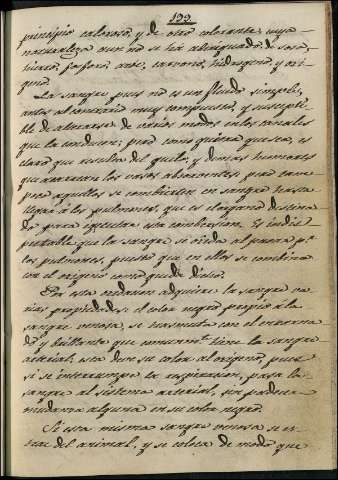 133.
principio caloroso, y de otro colorante, cuya
naturaleza aun no se ha averiguado, de sosa,
hierro, fosforo, azoe, carvono, hidrogeno, y oxi-
geno.
La sangre pues no es un fluido simple,
antes al contrario muy compuesto, y suscepti-
ble de alterarse de varios modos en los canales
que la conducen; pero como quiera que sea, es
claro que resulta del quilo, y demas humores
que acarrean los vasos absorventes pero
pero aquellos se combierten en sangre hasta
llegar á los pulmones, que es el organo destina-
do para egecutar esta combersion. Es indis-
putable que la sangre se oxida al pasar pr.
los pulmones, puesto que en ellos se combina
con el oxigeno como queda dicho.
Por esta oxidacion adquiere la sangre va-
rias propiedades: el color negro propio á la
sangre venosa, se trasmuta con el encarna-
do y brillante que comunmte. tiene la sangre
arterial; esta debe su color al oxigeno, pues
si se interrumpe la respiracion, pasa la
sangre al sistema arterial, sin padecer
mudanza alguna en su color negro.
Si esta misma sangre venosa se ex-
trae del animal, y se coloca de modo que